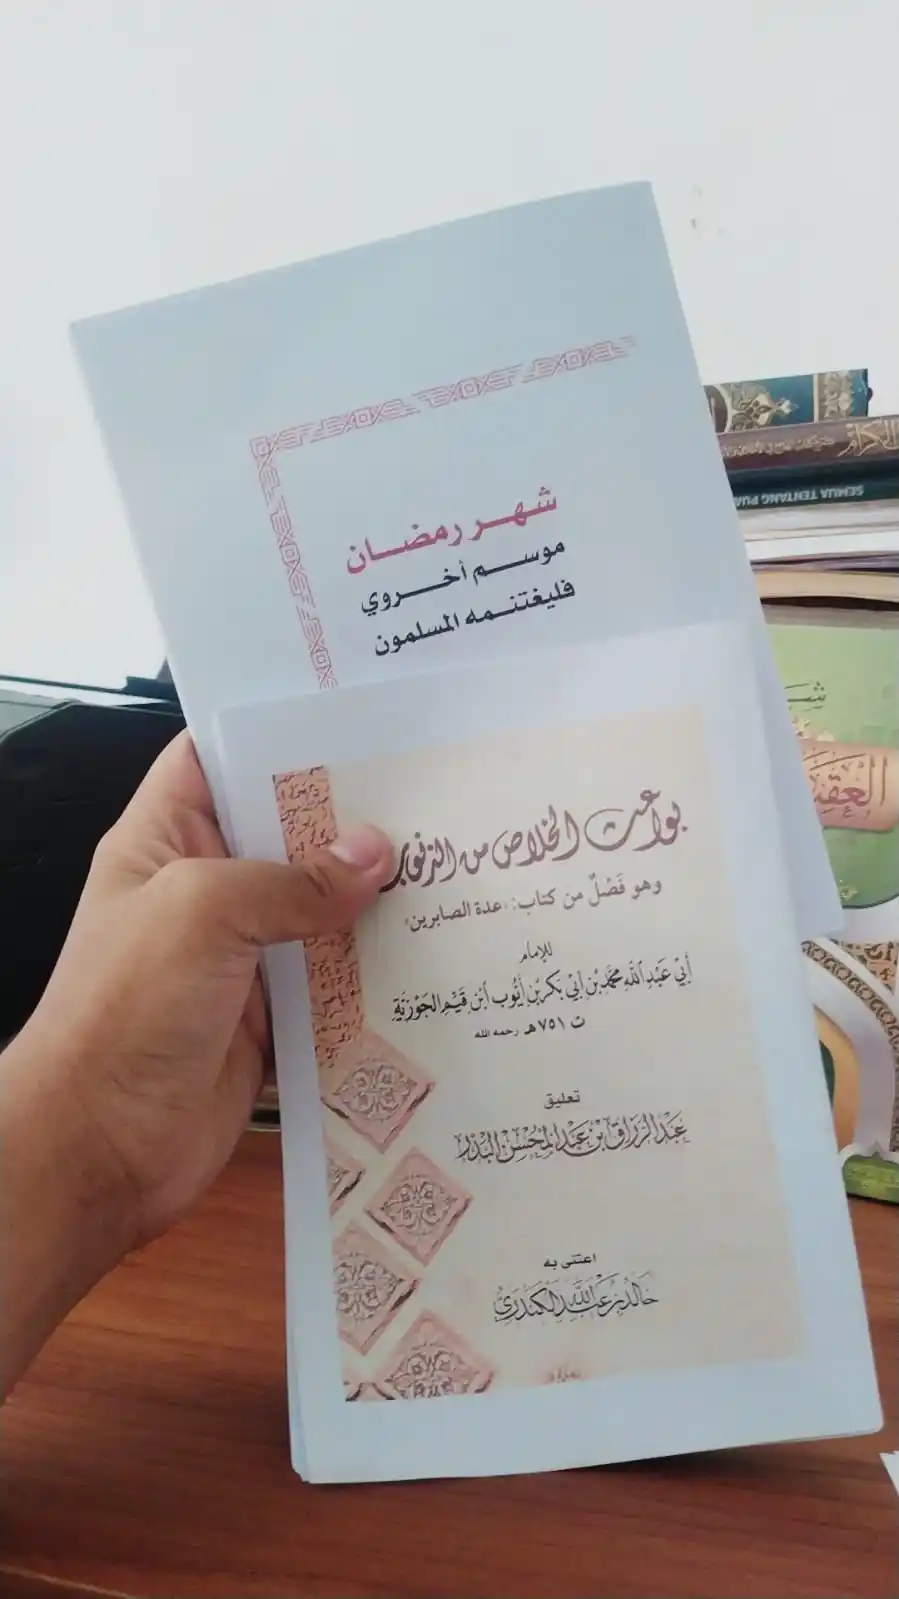 شهر رمضان
موسم أخروي
فليغتنمه المسلمون
بواعث الخلاص من الذنوب
وهو فَصْلٌ من كتاب: «عدة الصابرين»
للإمام
أبي عبد الله محمد بن أبي بكر بن أيوب ابن قيم الجوزية
ت ٧٥١هـ رحمه الله
تعليق
عبد الرزاق بن عبد المحسن البدر
اعتنى به
خالد بن عبد الله الكندري
SEMUA TENTANG PUA